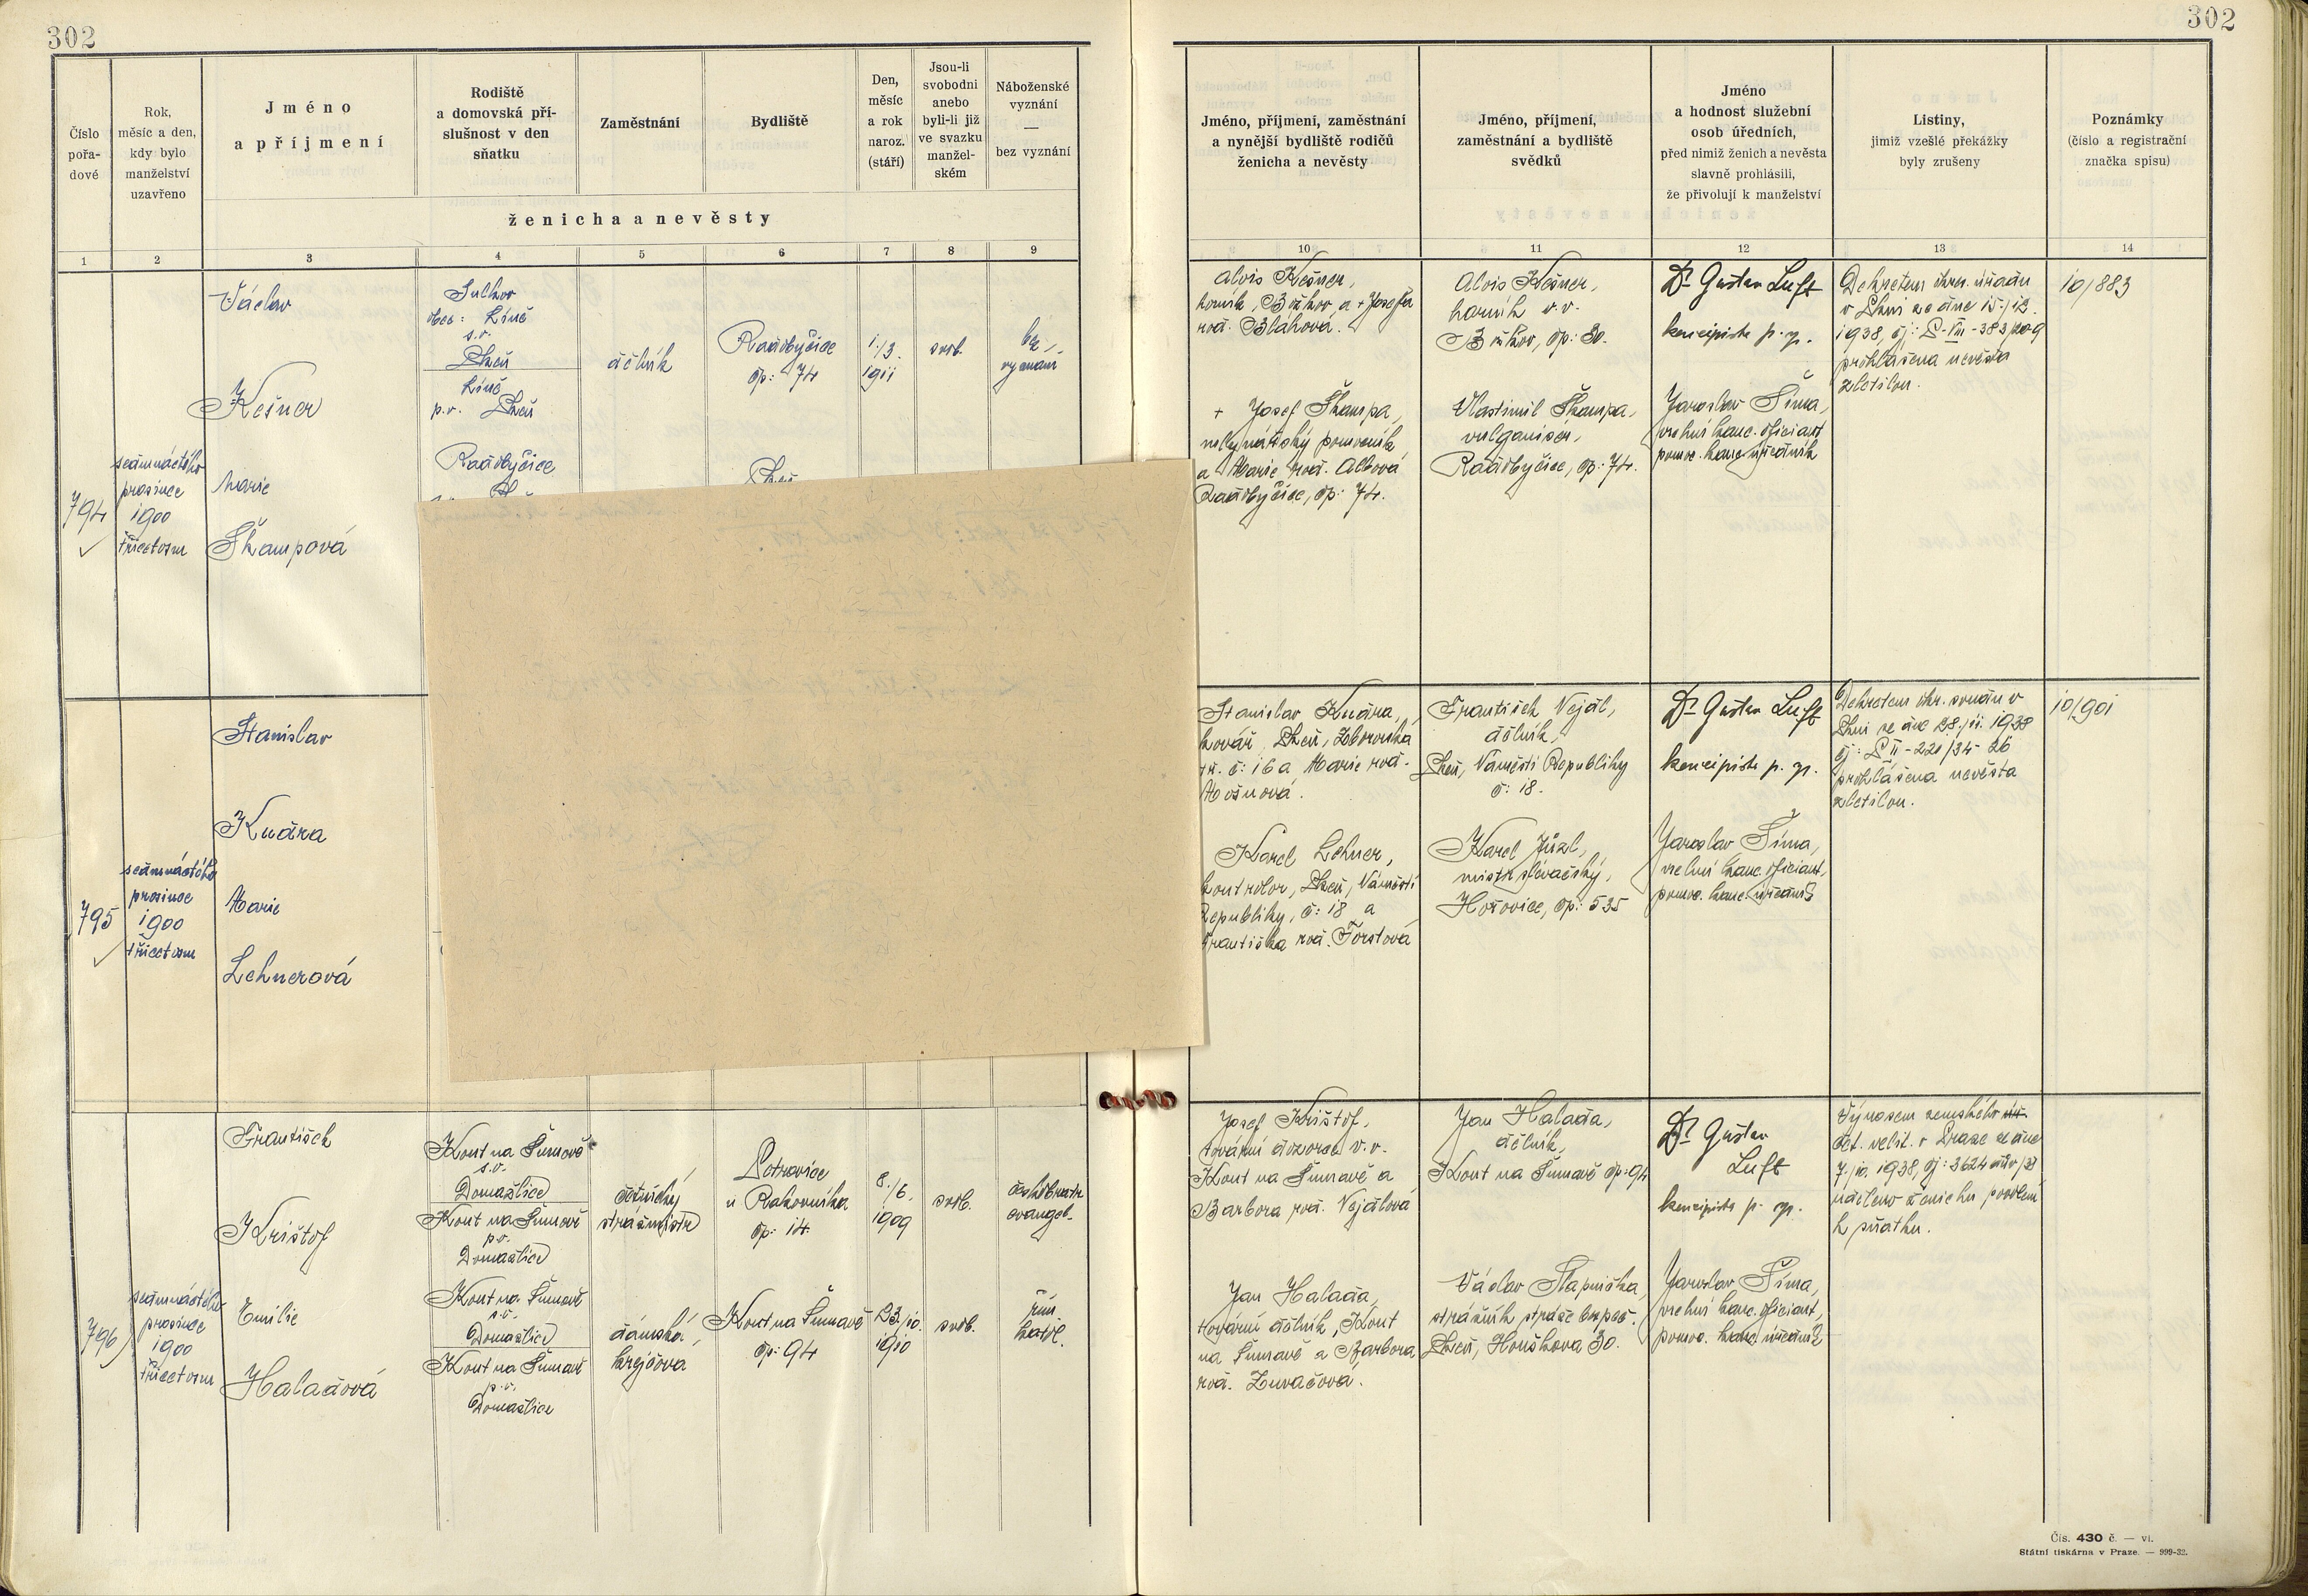 302
302
Číslo
pořa-
dové
Rok,
měsíc a den,
kdy bylo
manželství
uzavřeno
Jméno
a příjmení
Rodiště
a domovská pří-
slušnost v den
sňatku
Zaměstnání
Bydliště
Den,
měsíc
a rok
naroz.
(stáří)
Jsou-li
svobodni
anebo
byli-li již
ve svazku
manžel-
ském
Náboženské
vyznání
—
bez vyznání
ženicha a nevěsty
Jméno, příjmení, zaměstnání
a nynější bydliště rodičů
ženicha a nevěsty
Jméno, příjmení,
zaměstnání a bydliště
svědků
Jméno
a hodnost služební
osob úředních,
před nimiž ženich a nevěsta
slavně prohlásili,
že přivolují k manželství
Listiny,
jimiž vzešlé překážky
byly zrušeny
Poznámky
(číslo a registrační
značka spisu)
1 2 3 4 5 6 7 8 9
10 11 12 13 14
794
sedmnáctého
prosince
1900
třicetosm
Václav
Kešner
Marie
Škampová
Sulkov
obec: Líně
s.o.
Plzeň
Líně
p.o. Plzeň
Radobyčice
dělník
Radobyčice
čp: 74
Plzeň
1./3.
1911
svob.
bez
vyznání
Alois Kešner,
horník, Božkov a + Josefa
roz. Bláhová.
+ Josef Škampa,
mlynářský pomocník
a Marie roz. Albová
Radobyčice, čp: 74.
Alois Kešner,
horník v.v.
Božkov, čp: 30.
Vlastimil Škampa,
vulganisér,
Radobyčice, čp: 74.
Dr Gustav Luft
koncipista p. sp.
Jaroslav Šíma,
vrchní kanc. oficiant
pomoc. kanc. úředník
Dekretem okres. úřadu
v Plzni ze dne 15./12.
1938, čj: P-III-383/20-9
prohlášena nevěsta
zletilou.
10/883
795
sedmnáctého
prosince
1900
třicetosm
Stanislav
Kudrna
Marie
Lehnerová
Stanislav Kudrna,
kovář, Plzeň, Zborovská
tř. č: 16 a Marie roz.
Mošnová.
Karel Lehner,
kontrolor, Plzeň, Náměstí
Republiky, č: 18 a
Františka roz. Forstová
František Vejdl,
dělník,
Plzeň, Náměstí Republiky
č: 18.
Karel Jůzl,
mistr slévačský,
Hořovice, čp: 535
Dr Gustav Luft
koncipista p. sp.
Jaroslav Šíma,
vrchní kanc. oficiant,
pomoc. kanc. úředník
Dekretem okr. soudu v
Plzni ze dne 28./11. 1938
čj: P II-221/34-26
prohlášena nevěsta
zletilou.
10/901
796
sedmnáctého
prosince
1900
třicetosm
František
Krištof
Emilie
Haladová
Kout na Šumavě
s.o.
Domažlice
Kout na Šumavě
p.o.
Domažlice
Kout na Šumavě
s.o.
Domažlice
Kout na Šumavě
p.o.
Domažlice
četnický
strážmistr
dámská
krejčová
Petrovice
u Rakovníka
čp: 14.
Kout na Šumavě
čp: 94
8./6.
1909
23./10.
1910
svob.
svob.
českobratr.
evangel.
řím.
katol.
Josef Krištof,
tovární dozorce v.v.
Kout na Šumavě a
Barbora roz. Vejdlová
Jan Halada,
tovární dělník, Kout
na Šumavě a Barbora
roz. Zuvačová.
Jan Halada,
dělník,
Kout na Šumavě čp: 94
Václav Slapnička,
strážník stráže bezpeč.
Plzeň, Houškova 30.
Dr Gustav
Luft
koncipista p. sp.
Jaroslav Šíma,
vrchní kanc. oficiant,
pomoc. kanc. úředník
Výnosem zemského
čet. velit. v Praze ze dne
7./10. 1938, čj: 3624
uděleno ženichu povolení
k sňatku.
Čís. 430 č. — vl.
Státní tiskárna v Praze. — 999-32.